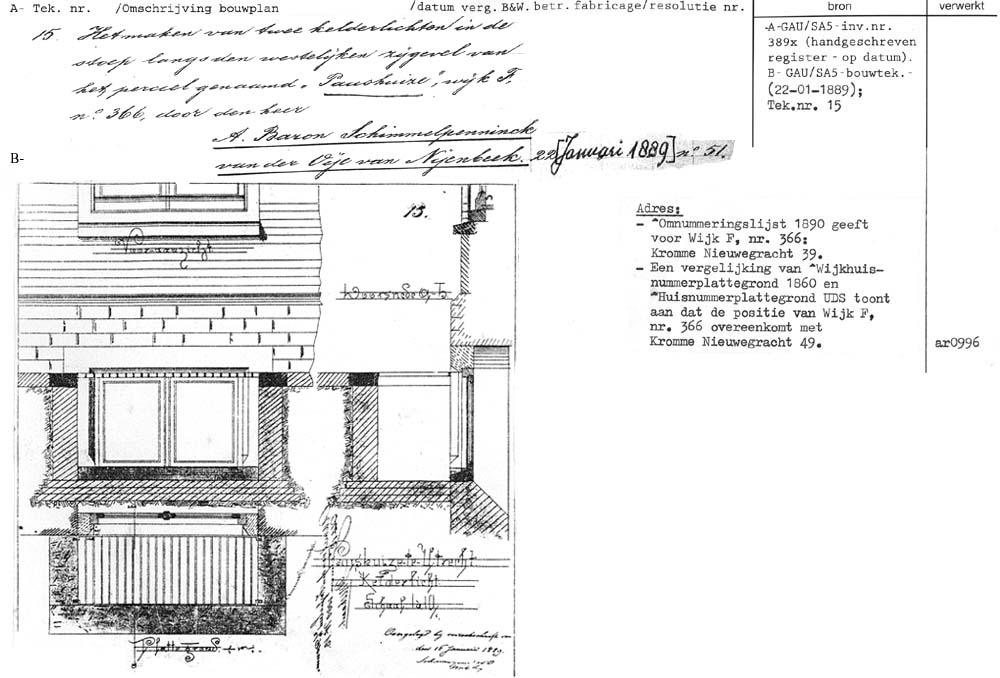 A- Tek. nr. /Omschrijving bouwplan /datum verg. B&W. betr. fabricage/resolutie nr. bron verwerkt
15. Het maken van twee kelderlichten in de
stoep langs den westelijken zijgevel van
het perciel genaamd "Paushuize", wijk F.
no. 366, door den heer
A. Baron Schimmelpenninck
van der Oije van Nijenbeek. 22 [Januari 1889] no. 51.
A-GAU/SA5-inv.nr.
389x (handgeschreven
register - op datum).
B- GAU/SA5-bouwtek.-
(22-01-1889);
Tek.nr. 15
B-
15.
Vooraanzicht
Doorsnede
Adres:
- ^Omnummeringslijst 1890 geeft
voor Wijk F, nr. 366:
Kromme Nieuwegracht 39.
- Een vergelijking van ^Wijkhuis-
nummerplattegrond 1860 en
^Huisnummerplattegrond UDS toont
aan dat de positie van Wijk F,
nr. 366 overeenkomt met
Kromme Nieuwegracht 49.
ar0996
Paushuize te Utrecht
Kelderlicht
Schaal 1 à 10.
Plattegrond
den 15 Januari 1889.